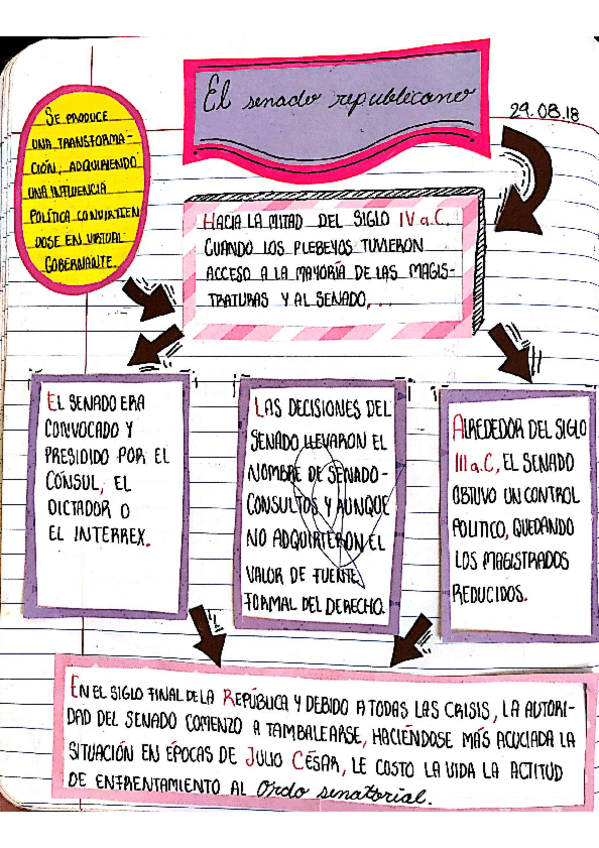 El senado republicano
29.08.18
SE PRODUCE
UNA TRANSFORMA-
CIÓN, ADQUIRIENDO
UNA INFLUENCIA
POLÍTICA CONVIRTIEN
DOSE EN VIRTUAL
GOBERNANTE.
HACIA LA MITAD DEL SIGLO IV a.C.
CUANDO LOS PLEBEYOS TUVIERON
ACCESO A LA MAYORÍA DE LAS MAGIS-
TRATURAS Y AL SENADO, ...
EL SENADO ERA
CONVOCADO Y
PRESIDIDO POR EL
CÓNSUL, EL
DICTADOR O
EL INTERREX.
LAS DECISIONES DEL
SENADO LLEVARON EL
NOMBRE DE SENADO-
CONSULTOS Y AUNQUE
NO ADQUIRIERON EL
VALOR DE FUENTE
FORMAL DEL DERECHO.
ALREDEDOR DEL SIGLO
III a.C, EL SENADO
OBTUVO UN CONTROL
POLITICO, QUEDANDO
LOS MAGISTRADOS
REDUCIDOS.
EN EL SIGLO FINAL DE LA REPÚBLICA Y DEBIDO A TODAS LAS CRISIS, LA AUTORI-
DAD DEL SENADO COMENZO A TAMBALEARSE, HACIÉNDOSE MÁS ACUCIADA LA
SITUACIÓN EN ÉPOCAS DE JULIO CÉSAR, LE COSTO LA VIDA LA ACTITUD
DE ENFRENTAMIENTO AL Ordo senatorial.